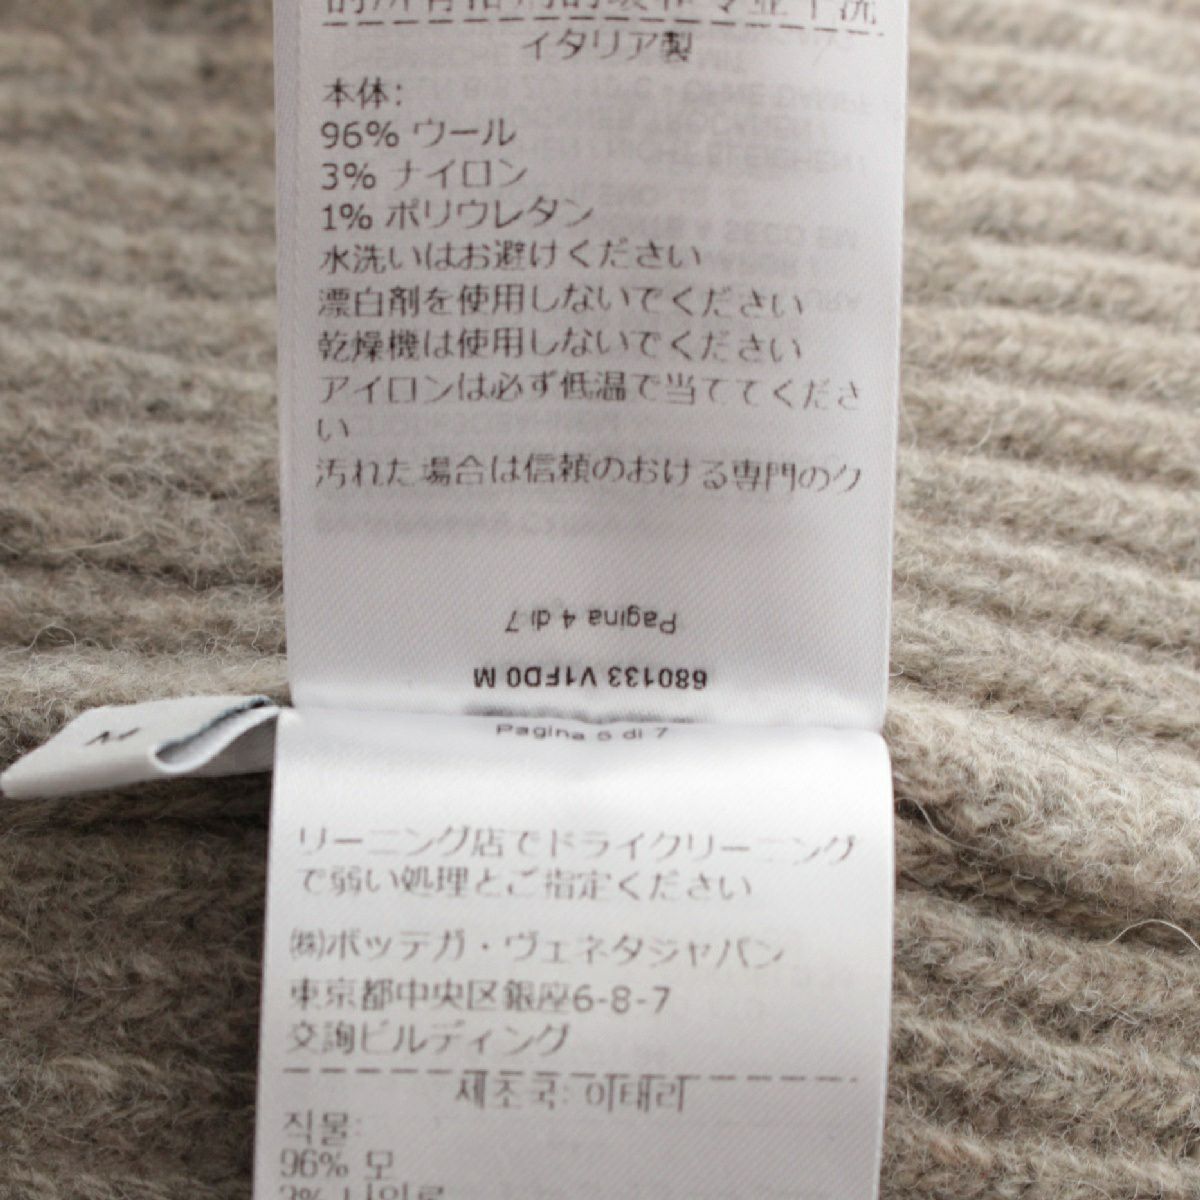 イタリア製
本体:
96% ウール
3% ナイロン
1% ポリウレタン
水洗いはお避けください
漂白剤を使用しないでください
乾燥機は使用しないでください
アイロンは必ず低温で当ててくださ
い
汚れた場合は信頼のおける専門のク
Pagina 4 di 7
680133 V1FD0 M
M
Pagina 5 di 7
リーニング店でドライクリーニング
で弱い処理とご指定ください
㈱ボッテガ・ヴェネタジャパン
東京都中央区銀座6-8-7
交詢ビルディング
제조국: 이태리
직물:
96% 모